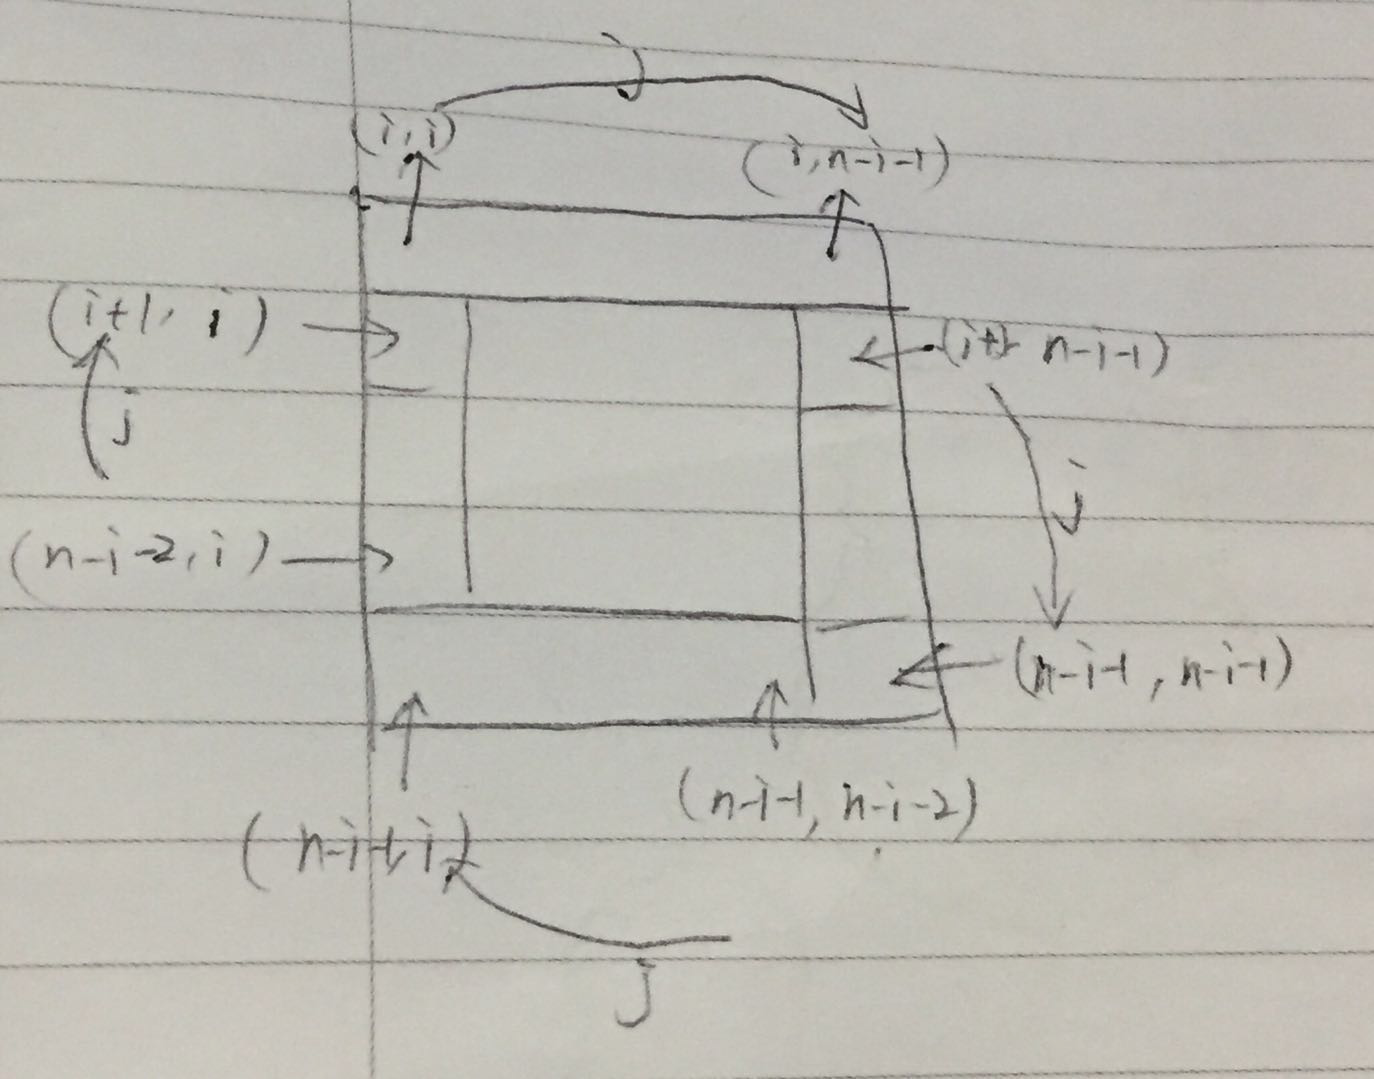 j
(i, i)
(i, n-i-1)
(i+1, i)
(i+1 n-i-1)
j
j
(n-i-2, i)
(n-i-1, n-i-1)
(n-i-1, n-i-2)
(n-i-1, i)
j